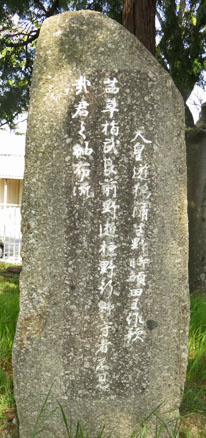 天皇遊猟蒲生野時額田王作歌
茜草指武良前野逝標野行野守者不見哉
君之袖布流